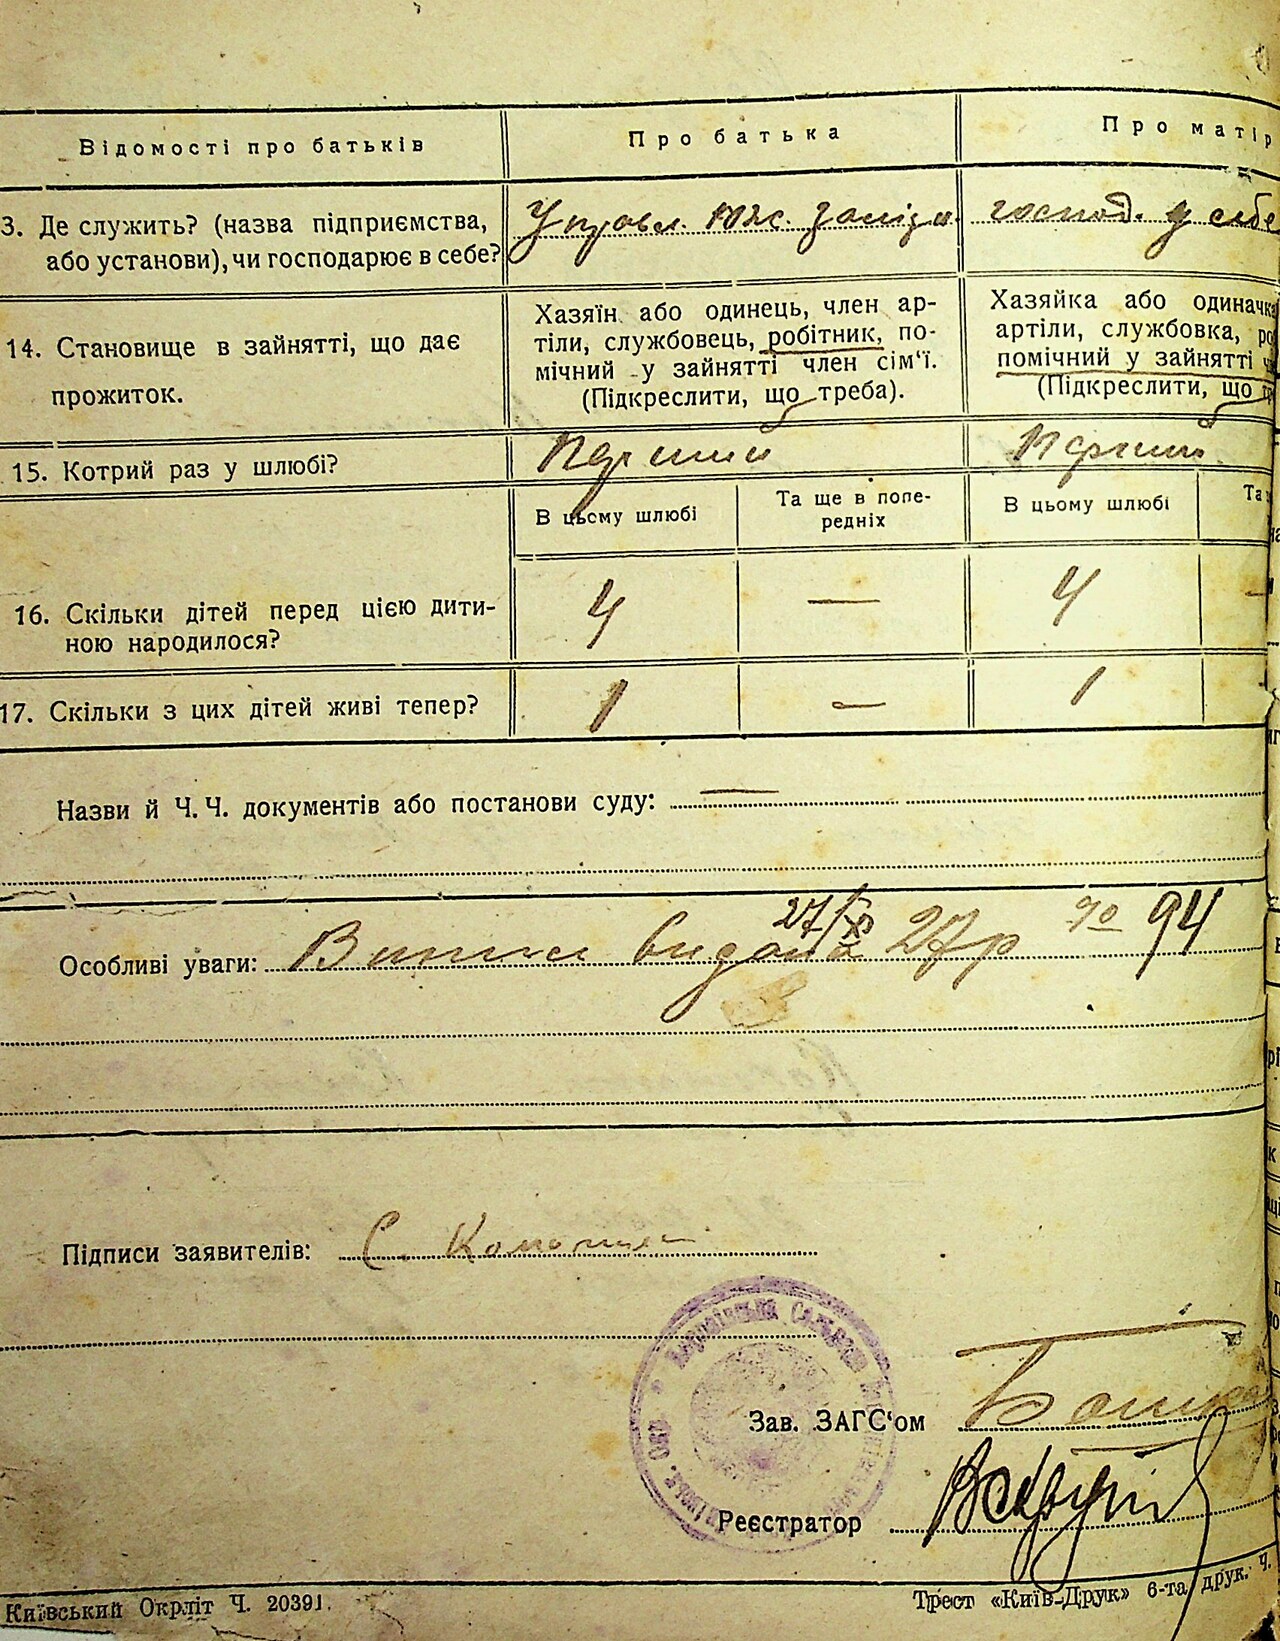 Відомості про батьків
Про батька
Про матір
3. Де служить? (назва підприємства,
або установи), чи господарює в себе?
Управл. Юж. заліз.
господ. у себе
14. Становище в зайнятті, що дає
прожиток.
Хазяїн або одинець, член ар-
тіли, службовець, робітник, по-
мічний у зайнятті член сім'ї.
(Підкреслити, що треба).
Хазяйка або одиначка
артіли, службовка, ро
помічний у зайнятті
(Підкреслити, що
15. Котрий раз у шлюбі?
Перший
Перший
В цьому шлюбі
Та ще в попе-
редніх
В цьому шлюбі
Та
16. Скільки дітей перед цією дити-
ною народилося?
4
—
4
—
17. Скільки з цих дітей живі тепер?
1
—
1
Назви й Ч. Ч. документів або постанови суду: —
Особливі уваги: видана 27р 94
Підписи заявителів: С.
Зав. ЗАГС'ом
Реєстратор
Київський Окрліт Ч. 20391.
Трест «Київ-Друк» 6-та друк. Ч.